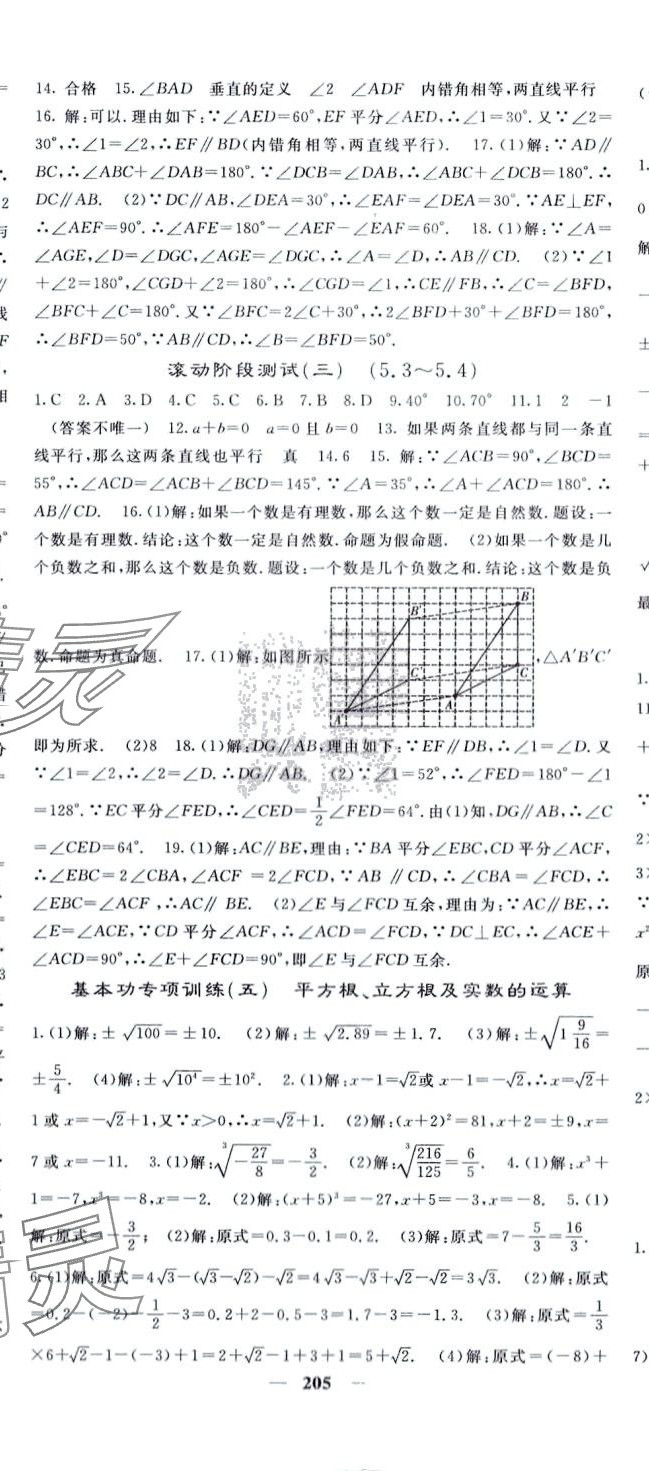 14. 合格 15.∠BAD 垂直的定义 ∠2 ∠ADF 内错角相等,两直线平行
16. 解:可以.理由如下:∵∠AED=60°,EF平分∠AED,∴∠1=30°.又∵∠2=
30°,∴∠1=∠2,∴EF∥BD(内错角相等,两直线平行). 17.(1)解:∵AD∥
BC,∴∠ABC+∠DAB=180°.∵∠DCB=∠DAB,∴∠ABC+∠DCB=180°.∴
DC∥AB. (2)∵DC∥AB,∠DEA=30°,∴∠EAF=∠DEA=30°.∵AE⊥EF,
∴∠AEF=90°.∴∠AFE=180°-∠AEF-∠EAF=60°. 18.(1)解:∵∠A=
∠AGE,∠D=∠DGC,∠AGE=∠DGC,∴∠A=∠D,∴AB∥CD. (2)∵∠1
+∠2=180°,∠CGD+∠2=180°,∴∠CGD=∠1,∴CE∥FB,∴∠C=∠BFD,
∠BFC+∠C=180°.又∵∠BFC=2∠C+30°,∴2∠BFD+30°+∠BFD=180°,
∴∠BFD=50°,∵AB∥CD,∴∠B=∠BFD=50°.
滚动阶段测试(三) (5.3~5.4)
1.C 2.A 3.D 4.C 5.C 6.B 7.B 8.D 9.40° 10.70° 11.1 2 -1
(答案不唯一) 12.a+b=0 a=0且b=0 13. 如果两条直线都与同一条直
线平行,那么这两条直线也平行 真 14.6 15. 解:∵∠ACB=90°,∠BCD=
55°,∴∠ACD=∠ACB+∠BCD=145°.∵∠A=35°,∴∠A+∠ACD=180°.∴
AB∥CD. 16.(1)解:如果一个数是有理数,那么这个数一定是自然数.题设:一
个数是有理数.结论:这个数一定是自然数.命题为假命题. (2)如果一个数是几
个负数之和,那么这个数是负数.题设:一个数是几个负数之和.结论:这个数是负
数.命题为真命题. 17.(1)解:如图所示 B′ B C′ C A′ A ,△A′B′C′
即为所求. (2)8 18.(1)解:DG∥AB,理由如下:∵EF∥DB,∴∠1=∠D.又
∵∠1=∠2,∴∠2=∠D.∴DG∥AB. (2)∵∠1=52°,∠FED=180°-∠1
=128°.∵EC平分∠FED,∴∠CED=1/2∠FED=64°.由(1)知,DG∥AB,∴∠C
=∠CED=64°. 19.(1)解:AC∥BE,理由:∵BA平分∠EBC,CD平分∠ACF,
∴∠EBC=2∠CBA,∠ACF=2∠FCD,∵AB∥CD,∴∠CBA=∠FCD,∴
∠EBC=∠ACF,∴AC∥BE. (2)∠E与∠FCD互余,理由为:∵AC∥BE,∴
∠E=∠ACE,∵CD平分∠ACF,∴∠ACD=∠FCD,∵DC⊥EC,∴∠ACE+
∠ACD=90°,∴∠E+∠FCD=90°,即∠E与∠FCD互余.
基本功专项训练(五) 平方根、立方根及实数的运算
1.(1)解:±√100=±10. (2)解:±√2.89=±1.7. (3)解:±√(1 9/16)=
±5/4. (4)解:±√10⁴=±10². 2.(1)解:x-1=√2或x-1=-√2,∴x=√2+
1或x=-√2+1,又∵x>0,∴x=√2+1. (2)解:(x+2)²=81,x+2=±9,x=
7或x=-11. 3.(1)解:³√(-27/8)=-3/2. (2)解:³√(216/125)=6/5. 4.(1)解:x³+
1=-7,x³=-8,x=-2. (2)解:(x+5)³=-27,x+5=-3,x=-8. 5.(1)
解:原式=-3/2; (2)解:原式=0.3-0.1=0.2. (3)解:原式=7-5/3=16/3.
6.(1)解:原式=4√3-(√3-√2)-√2=4√3-√3+√2-√2=3√3. (2)解:原式
=0.2-(-2)-1/2-3=0.2+2-0.5-3=1.7-3=-1.3. (3)解:原式=1/3
×6+√2-1-(-3)+1=2+√2-1+3+1=5+√2. (4)解:原式=(-8)+
205